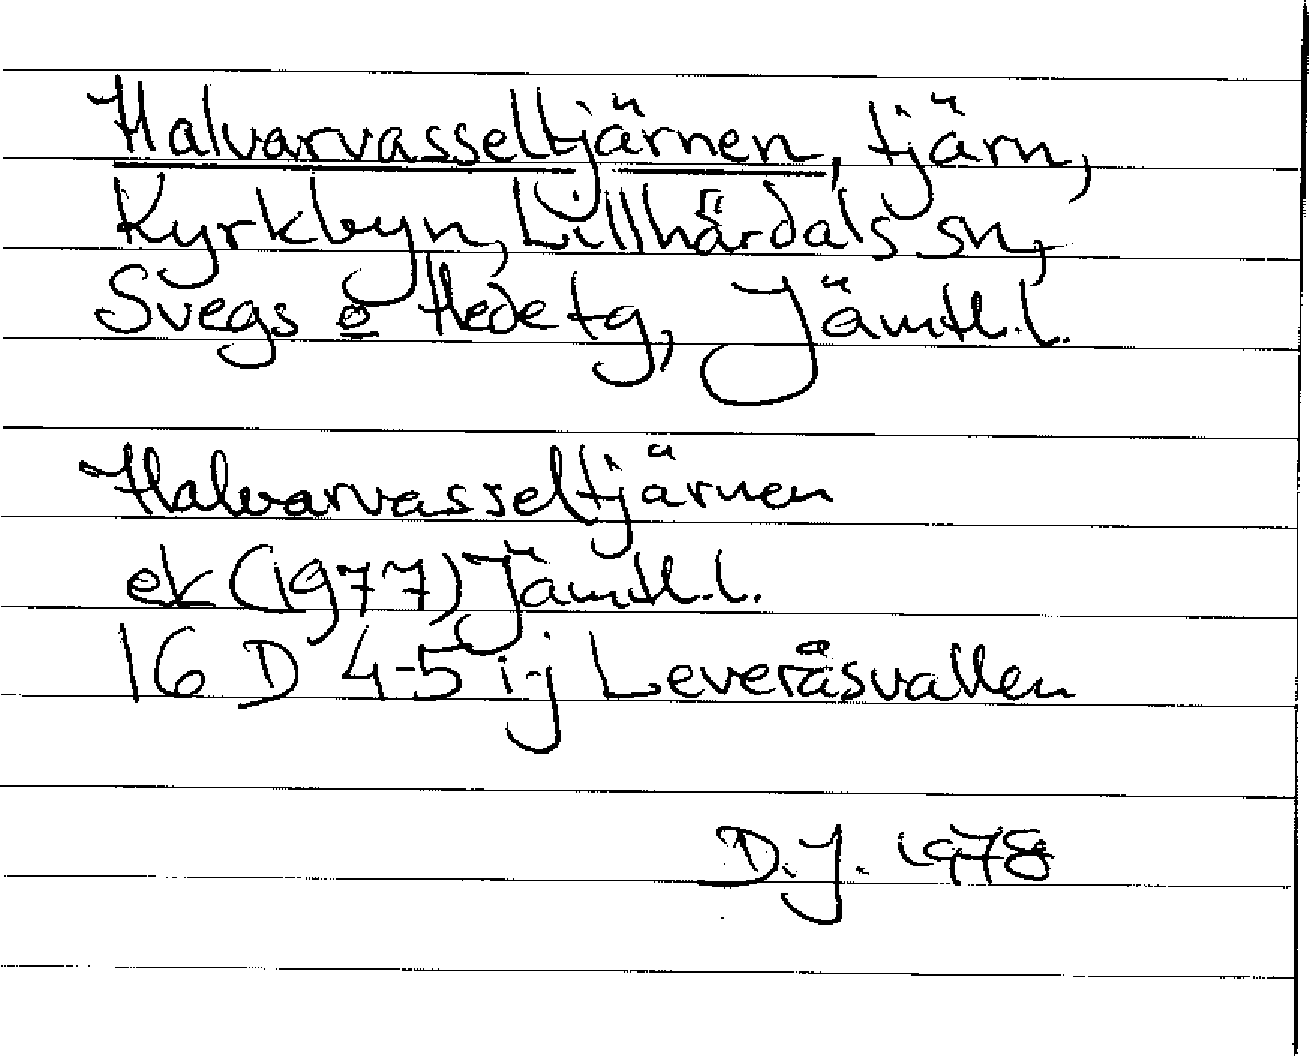 Halvarvasseltjärnen, tjärn,
Kyrkbyn, Lillhärdals sn,
Svegs o Hede tg, Jämtl.l.
Halvarvasseltjärnen
ek (1977) Jämtl.l.
16 D 4-5 i-j Leveråsvallen
D.J. 1978